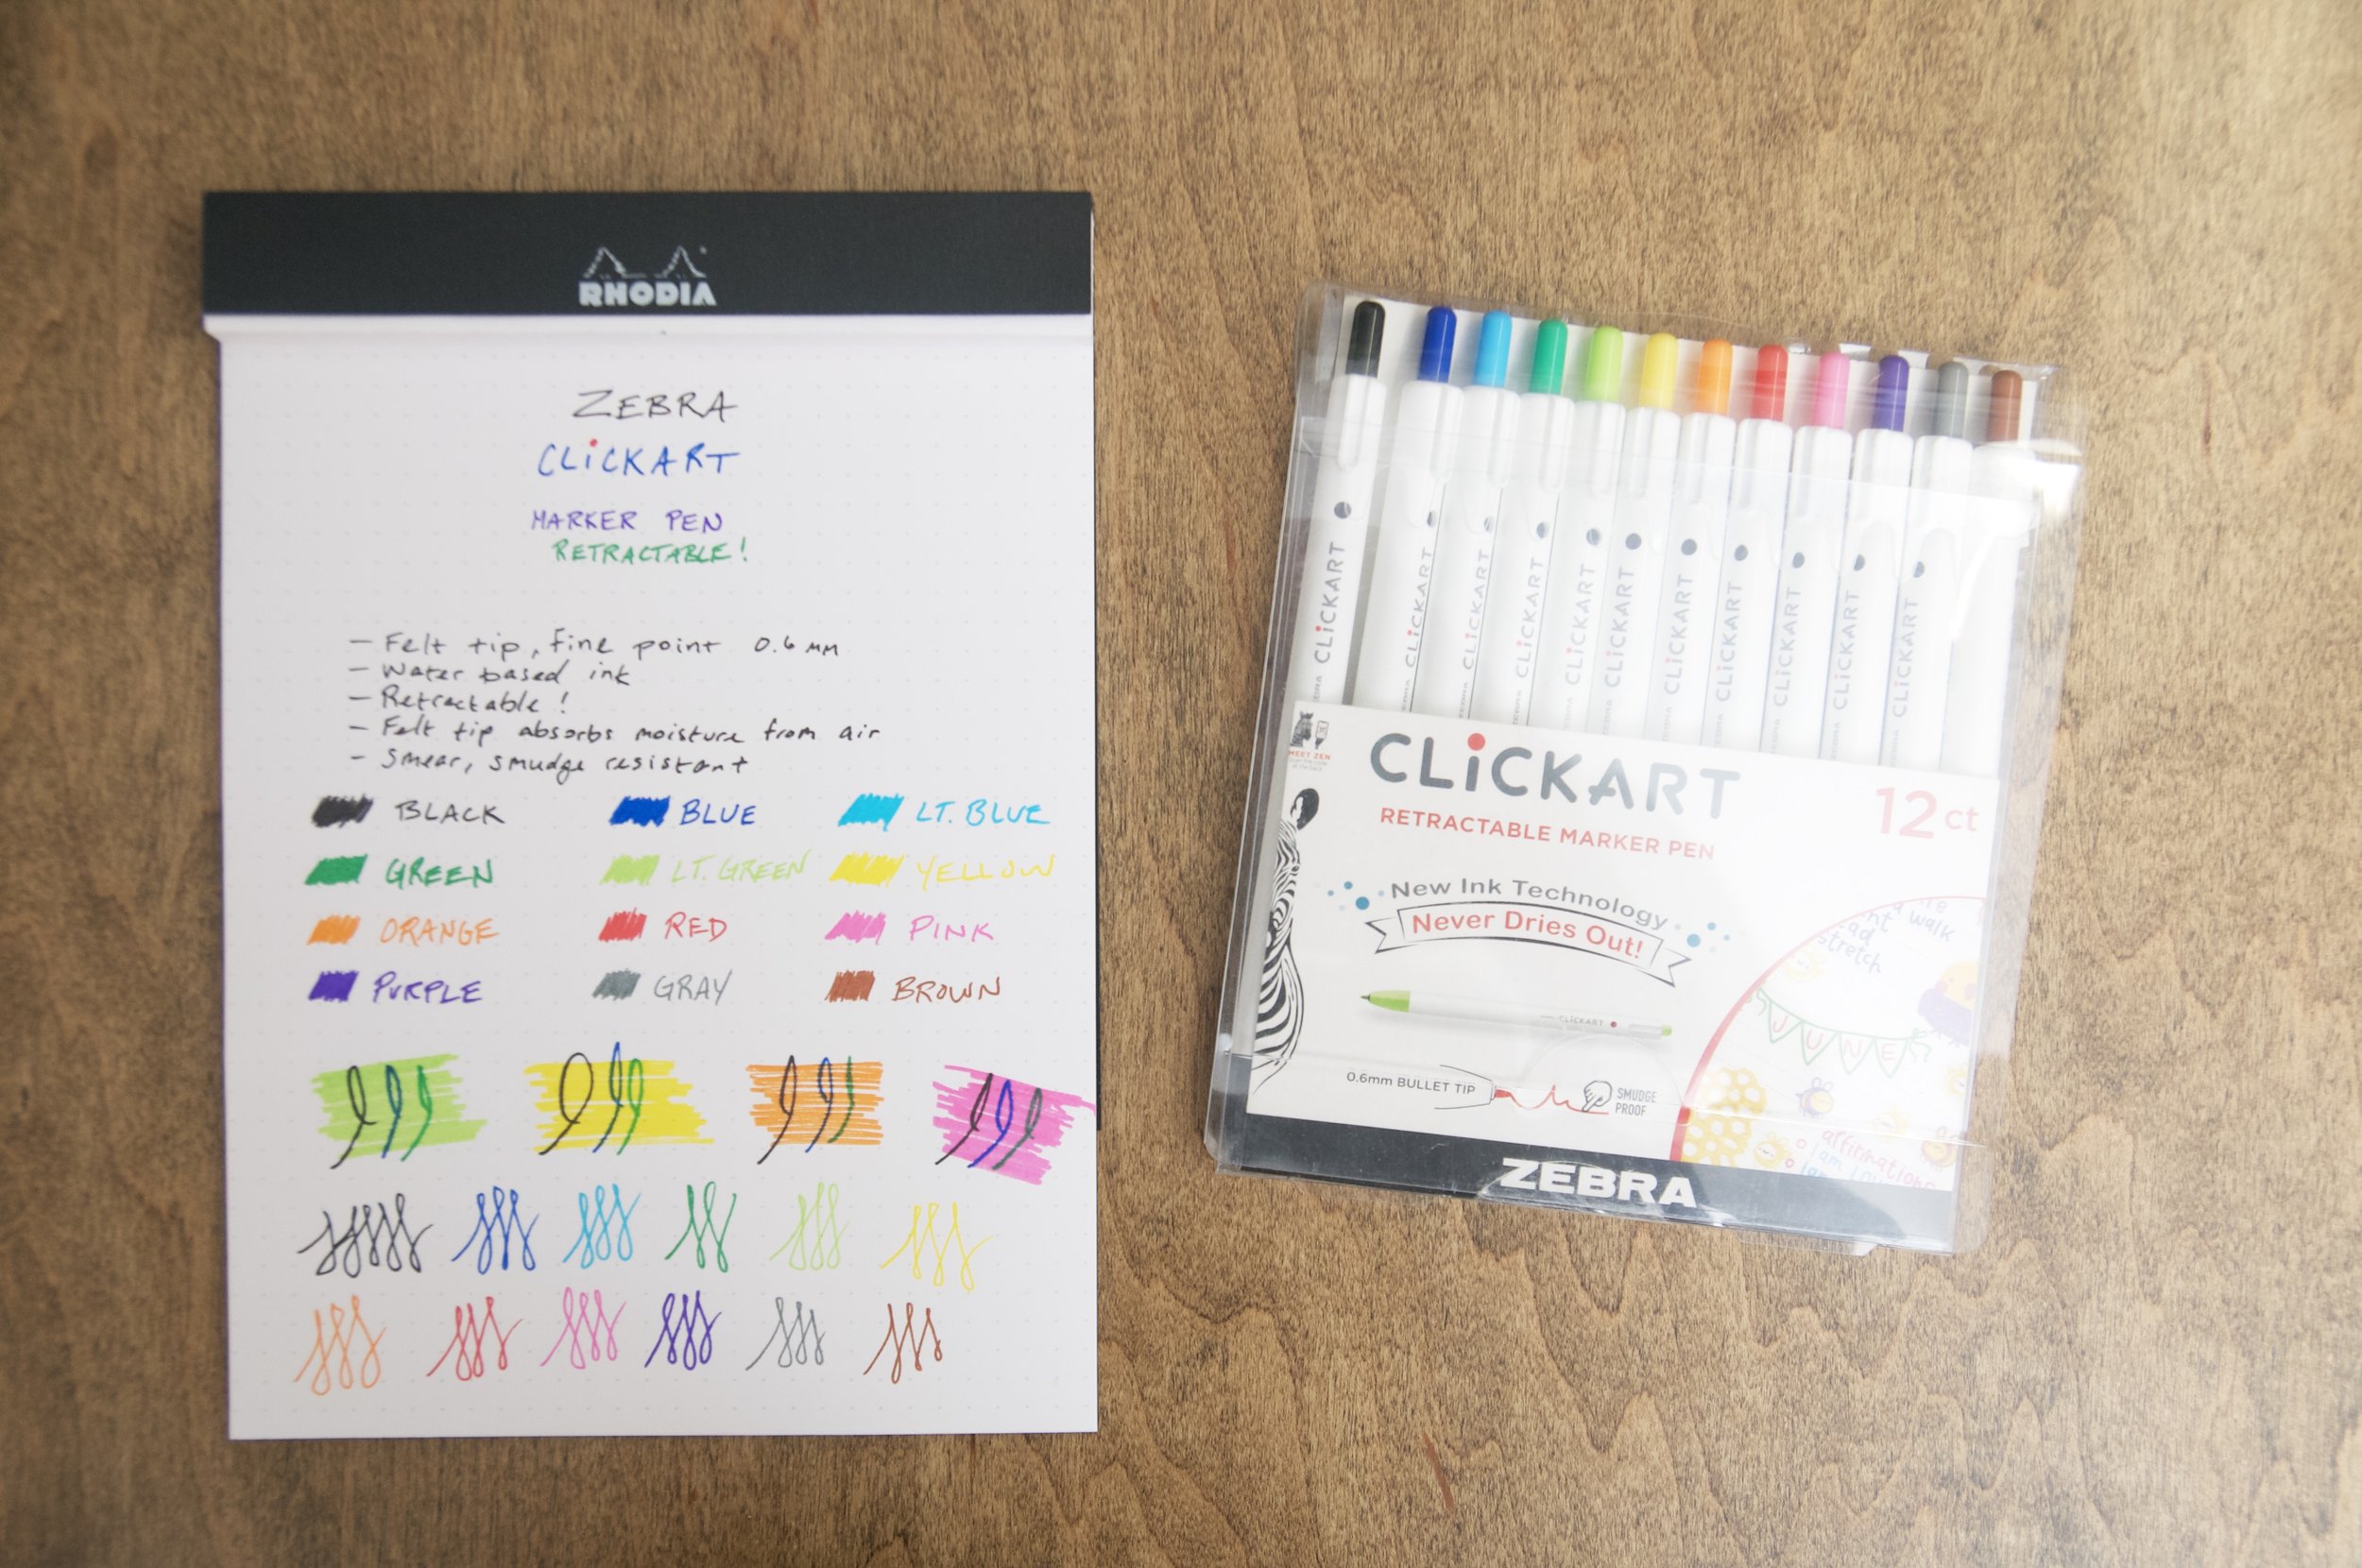 RHODIA
ZEBRA
CLiCKART
MARKER PEN
RETRACTABLE!
– Felt tip, fine point 0.6 mm
– Water based ink
– Retractable!
– Felt tip absorbs moisture from air
– Smear, smudge resistant
BLACK BLUE LT. BLUE
GREEN LT. GREEN YELLOW
ORANGE RED PINK
PURPLE GRAY BROWN
CLiCKART
CLiCKART
CLiCKART
CLiCKART
CLiCKART
CLiCKART
CLiCKART
CLiCKART
CLiCKART
CLiCKART
CLiCKART
MEET ZEN
CLiCKART
12 ct
RETRACTABLE MARKER PEN
New Ink Technology
Never Dries Out!
CLiCKART
0.6mm BULLET TIP
SMUDGE
PROOF
walk
stretch
JUNE
affirmations
I am
ZEBRA